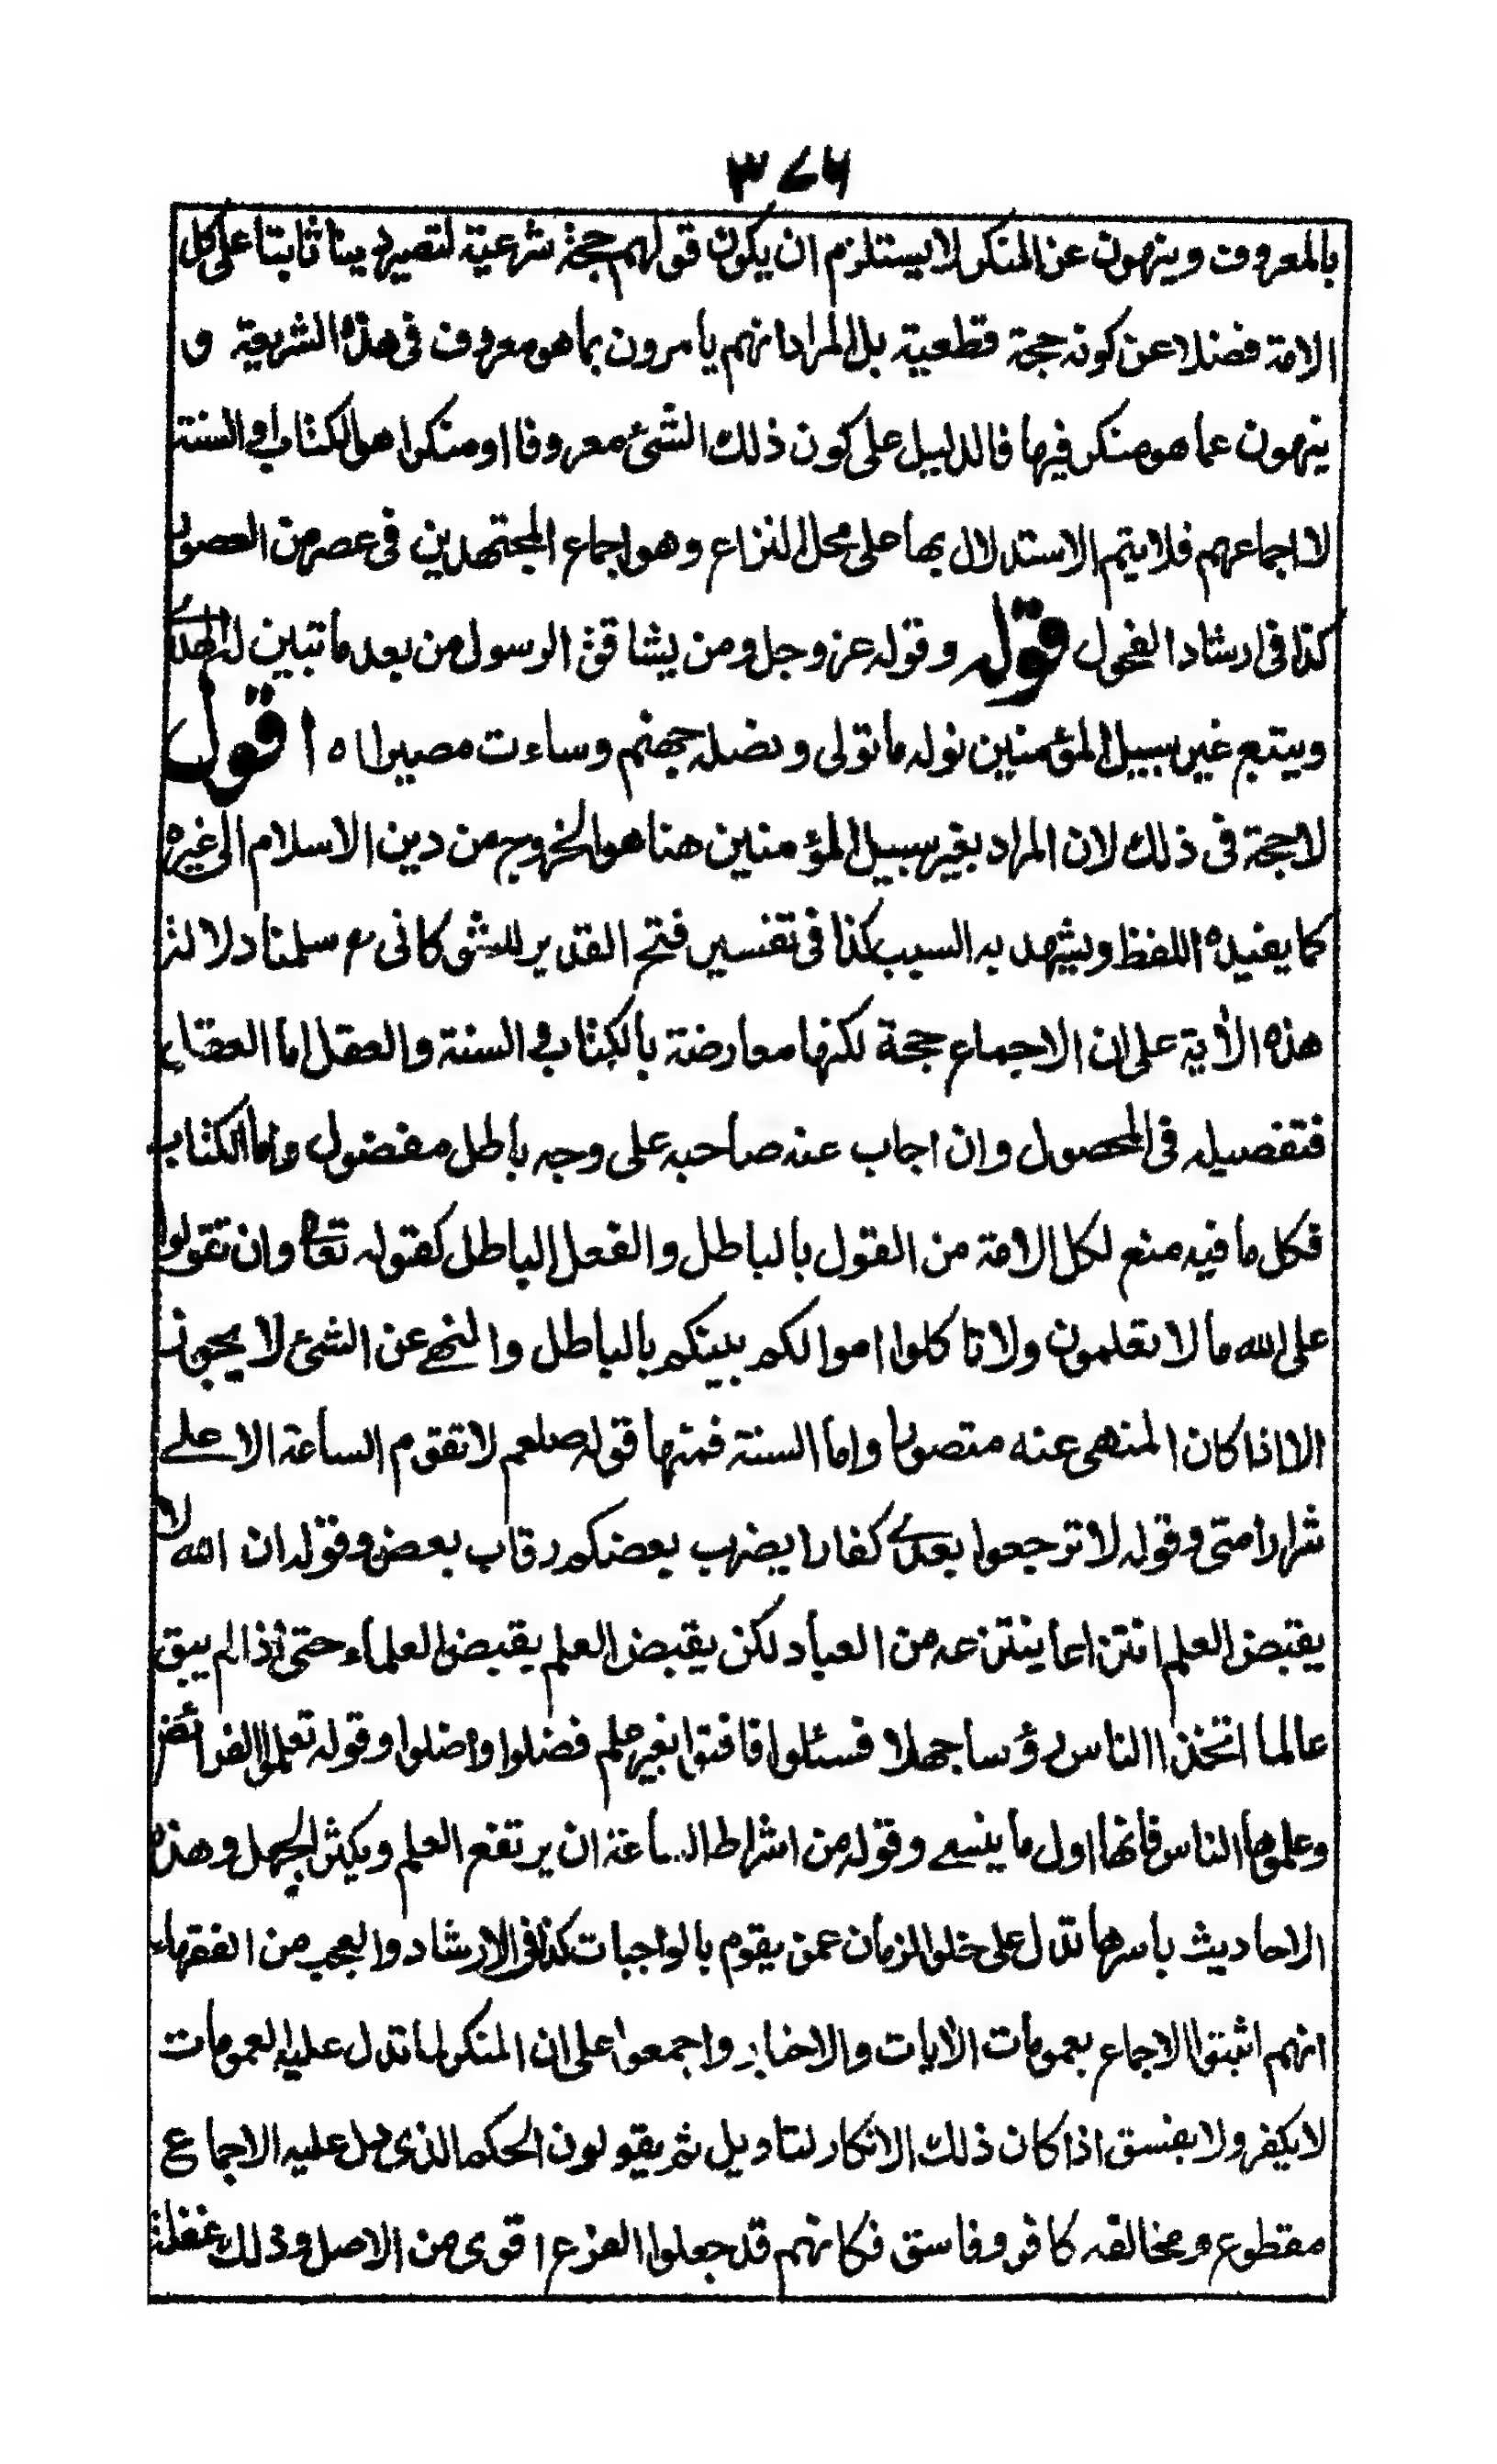 ٣٧٦
بالمعروف وينهون عن المنكر لا يستلزم ان يكون قولهم حجة شرعية لتصير دينا ثابتا على كل
الامة فضلا عن كونه حجة قطعية بل المراد انهم يامرون بما هو معروف فى هذه الشريعة و
ينهون عما هو منكر فيها فالدليل على كون ذلك الشئ معروفا او منكرا هو الكتاب او السنة
لا اجماعهم فلا يتم الاستدلال بها على محل النزاع وهو اجماع المجتهدين فى عصر من العصور
كذا فى ارشاد الفحول قوله وقوله عز وجل ومن يشاقق الرسول من بعد ما تبين له الهدى
ويتبع غير سبيل المؤمنين نوله ما تولى ونصله جهنم وساءت مصيرا اه اقول
لا حجة فى ذلك لان المراد بغير سبيل المؤمنين هنا هو الخروج من دين الاسلام الى غيره
كما يفيده اللفظ ويشهد به السبب كذا فى تفسير فتح القدير للشوكانى ع سلمنا دلالة
هذه الأية على ان الاجماع حجة لكنها معارضة بالكتاب و السنة والعقل اما العقل
فتفصيله فى المحصول وان اجاب عنه صاحبه على وجه باطل مفضول واما الكتاب
فكل ما فيه منع لكل الامة من القول بالباطل والفعل الباطل كقوله تعالى وان تقولوا
على الله ما لا تعلمون ولا تاكلوا اموالكم بينكم بالباطل والنهى عن الشئ لا يجوز
الا اذا كان المنهى عنه متصورا واما السنة فمنها قوله صلعم لا تقوم الساعة الا على
شرار امتى وقوله لا ترجعوا بعدى كفارا يضرب بعضكم رقاب بعض وقوله ان الله لا
يقبض العلم انتزاعا ينتزعه من العباد لكن يقبض العلم يقبض العلماء حتى اذا لم يبق
عالما اتخذ الناس رؤسا جهلا فسئلوا فافتوا بغير علم فضلوا واضلوا وقوله تعلموا الفرائض
وعلموها الناس فانها اول ما ينسى وقوله من اشراط الساعة ان يرتفع العلم ويكثر الجهل وهذه
الاحاديث باسرها تدل على خلو الزمان عمن يقوم بالواجبات كذا فى الارشاد والعجب من الفقهاء
انهم اثبتوا الاجماع بعمومات الأيات والاخبار واجمعوا على ان المنكر لما تدل عليه العمومات
لا يكفر ولا يفسق اذا كان ذلك الانكار لتاويل ثم يقولون الحكم الذى دل عليه الاجماع
مقطوع ومخالفه كافر وفاسق فكانهم قد جعلوا الفرع اقوى من الاصل وذلك غفلة